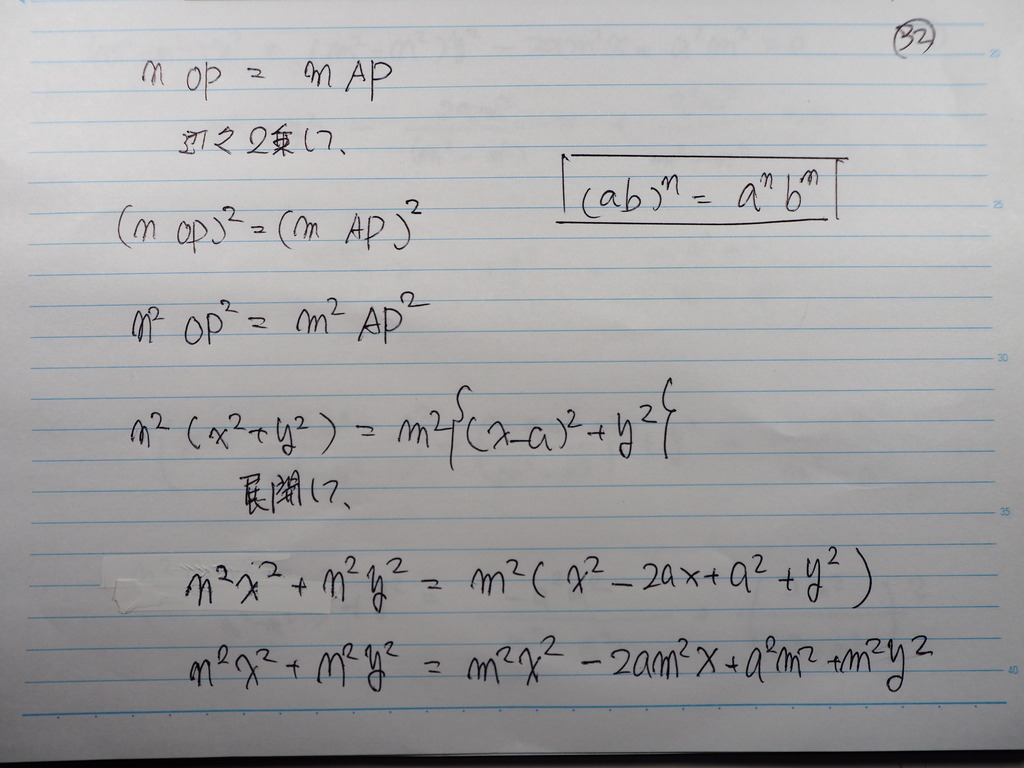 32
n OP = m AP
辺々2乗して、
(ab)ⁿ = aⁿ bⁿ
(n OP)² = (m AP)²
n² OP² = m² AP²
n² (x² + y²) = m² {(x-a)² + y²}
展開して、
n²x² + n²y² = m² (x² - 2ax + a² + y²)
n²x² + n²y² = m²x² - 2am²x + a²m² + m²y²
20
25
30
35
40